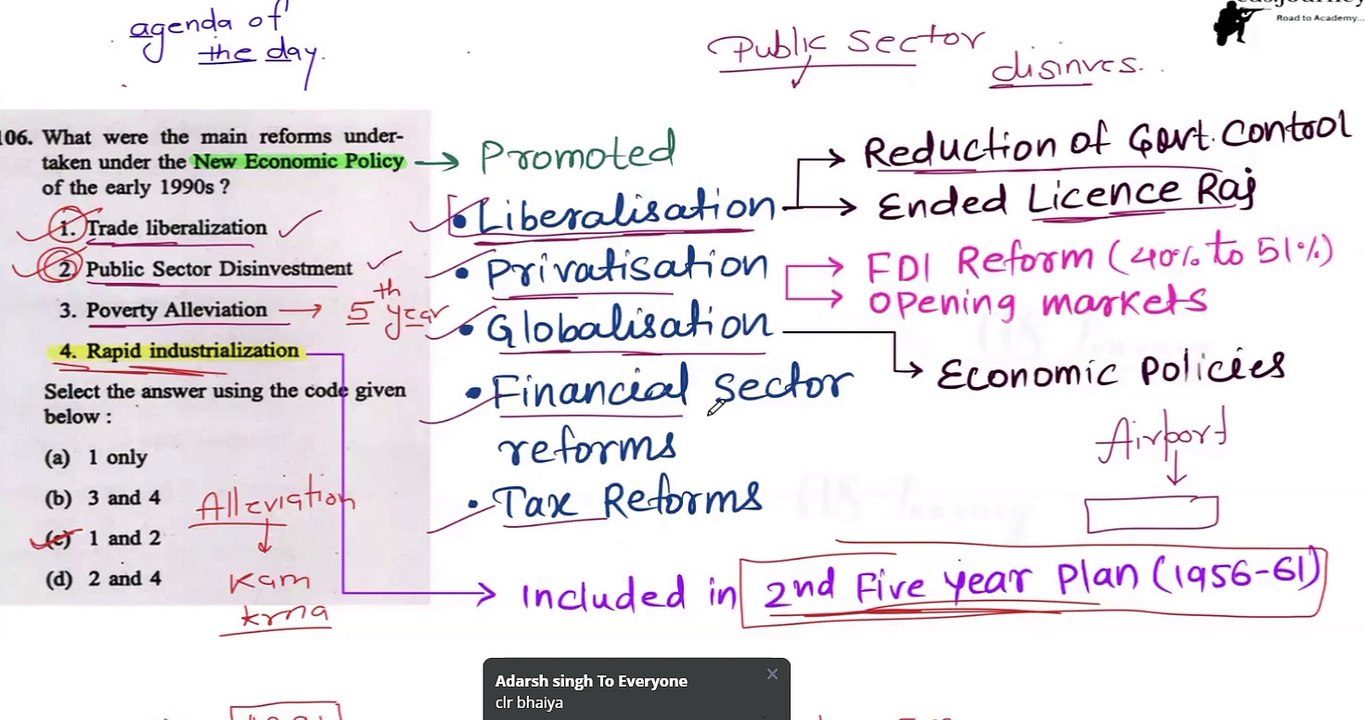 agenda of
the day.
Public Sector
disinves..
Road to Academy...
106. What were the main reforms under-
taken under the New Economic Policy
of the early 1990s ?
1. Trade liberalization
2. Public Sector Disinvestment
3. Poverty Alleviation
5th year
4. Rapid industrialization
Select the answer using the code given
below :
(a) 1 only
(b) 3 and 4
(c) 1 and 2
(d) 2 and 4
Alleviation
Kam
krna
Promoted
• Liberalisation
Reduction of Govt. Control
Ended Licence Raj
• Privatisation
FDI Reform (40% to 51%)
Opening markets
• Globalisation
Economic Policies
• Financial Sector
reforms
• Tax Reforms
Airport
Included in 2nd Five year Plan (1956-61)
Adarsh singh To Everyone
clr bhaiya